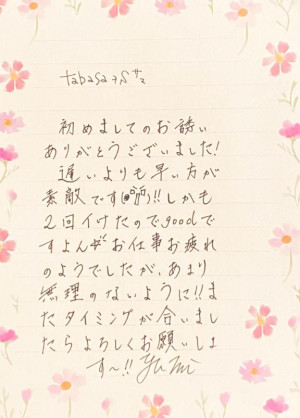 tabasaっぺサマ
初めましてのお誘い
ありがとうございました!
遅いよりも早い方が
素敵です!!しかも
2回イけたのでgoodで
すよん お仕事お疲れ
のようでしたが、あまり
無理のないように!!ま
たタイミングが合いまし
たらよろしくお願いしま
す〜!! yumi